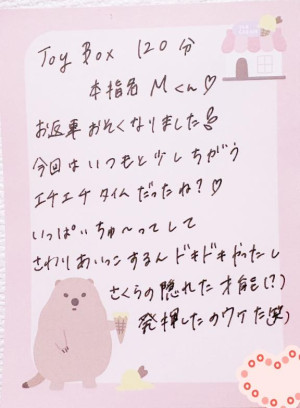 Toy Box 120分
本指名 Mくん♡
お返事おそくなりました
今回はいつもと少しちがう
エチエチタイムだったね?♡
いっぱいちゅ〜ってして
さわりあいっこするんドキドキやったし
さくらの隠れた才能(?)
発揮したのウケた笑)